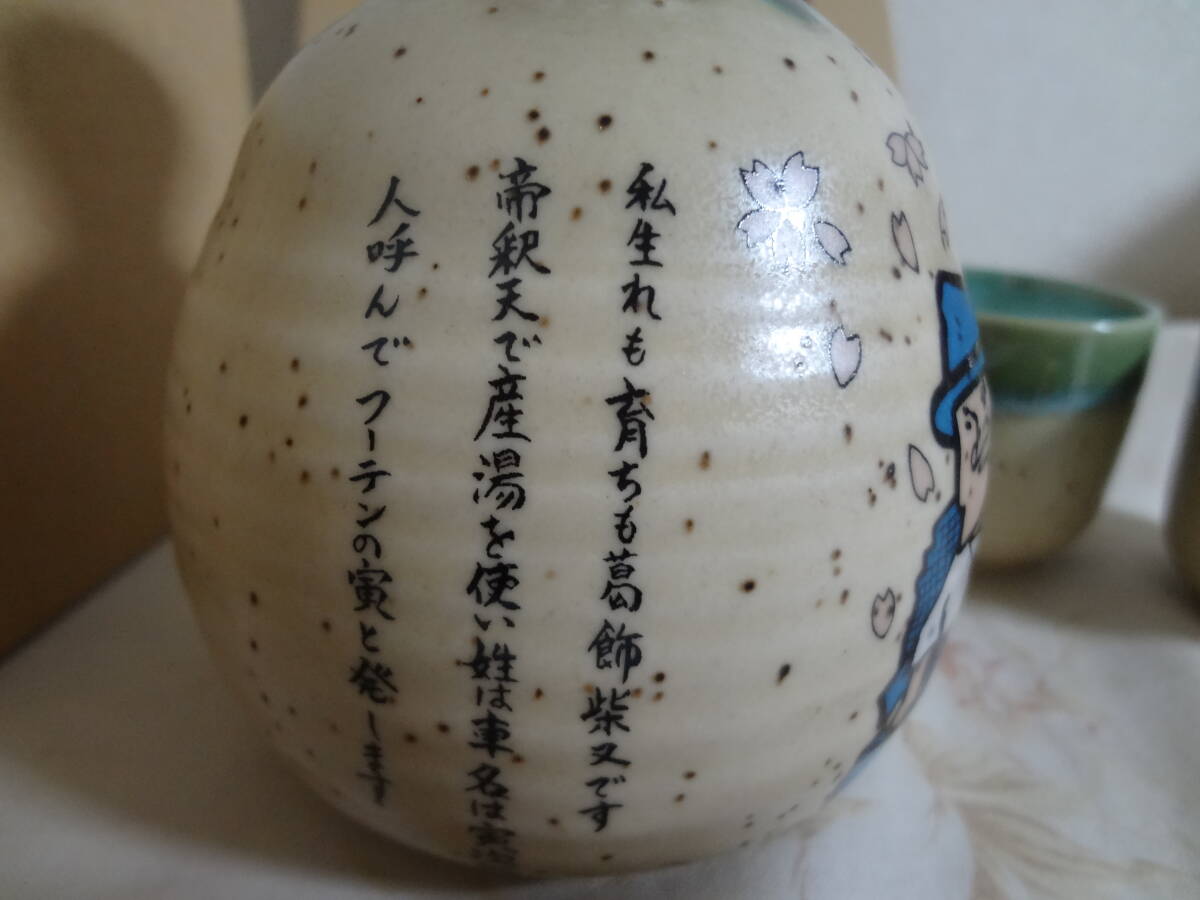 私生れも育ちも葛飾柴又です
帝釈天で産湯を使い姓は車名は寅次
人呼んでフーテンの寅と発します